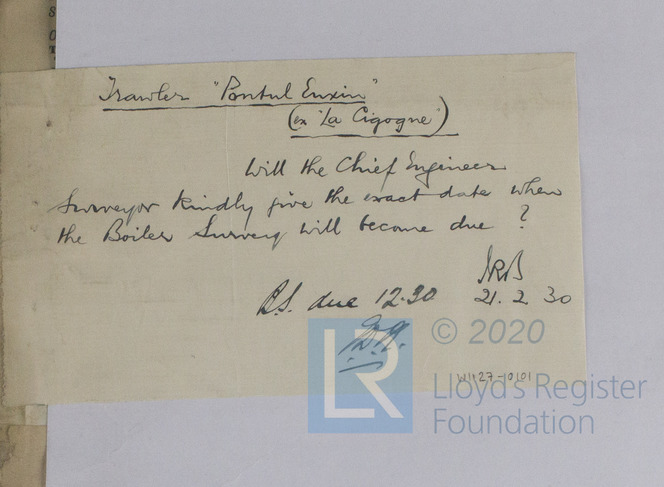 Trawler "Pontul Euxin"
(ex "La Cigogne")
Will the Chief Engineer
Surveyor kindly give the exact date when
the Boiler Survey will become due ?
B.S. due 12.30
21. 2. 30
LR
© 2020
W1127-0101
Lloyd's Register
Foundation